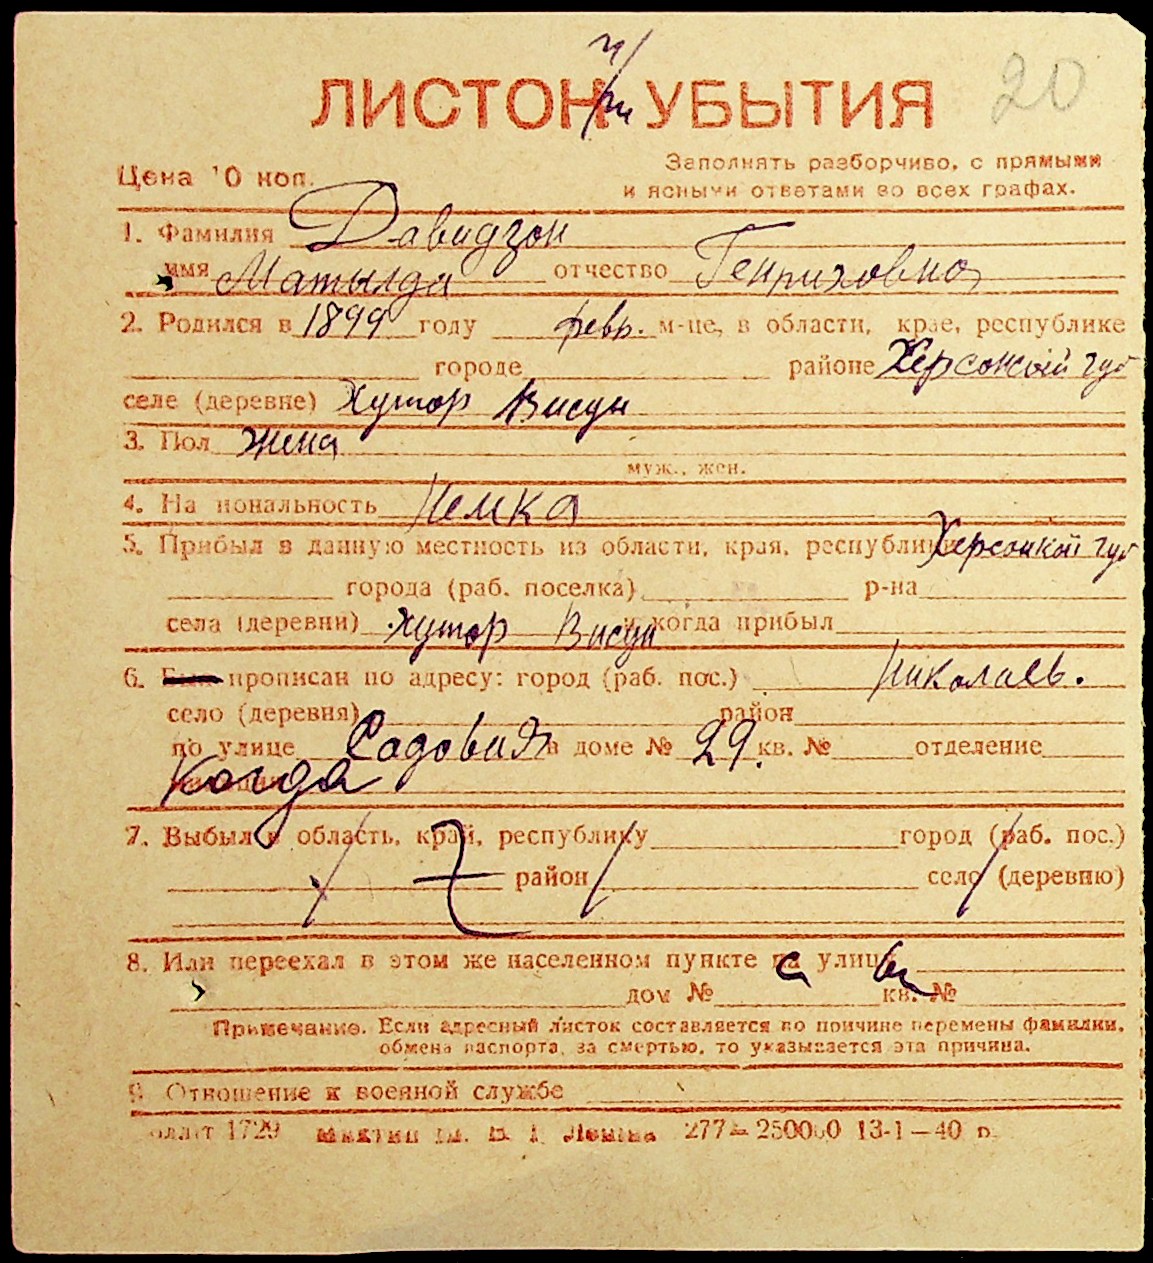 20
ЛИСТОК УБЫТИЯ
Цена 10 коп.
Заполнять разборчиво, с прямыми
и ясными ответами во всех графах.
1. Фамилия Давидзон
имя Матылда отчество Генриховна
2. Родился в 1899 году февр. м-це, в области, крае, республике
городе районе Херсонской губ
селе (деревне) Хутор Висун
3. Пол жена
муж., жен.
4. Национальность Немка
5. Прибыл в данную местность из области, края, республики Херсонской губ
города (раб. поселка) р-на
села (деревни) Хутор Висун и когда прибыл
6. прописан по адресу: город (раб. пос.) Николаев.
село (деревня) район
по улице Садовая в доме № 29. кв. № отделение
Когда
7. Выбыл в область, край, республику город (раб. пос.)
район село (деревню)
8. Или переехал в этом же населенном пункте на улицу
дом № кв. №
Примечание. Если адресный листок составляется по причине перемены фамилии,
обмена паспорта, за смертью, то указывается эта причина.
9. Отношение к военной службе
1729 277—250000 13-1—40 р.